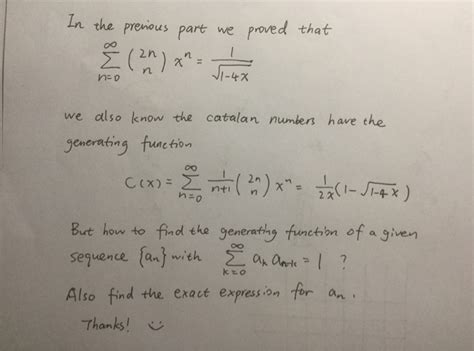 In the previous part we proved that
∞ Σ n=0 (2n n) xⁿ = 1/√(1-4x)
we also know the catalan numbers have the
generating function
C(x) = ∞ Σ n=0 1/(n+1) (2n n) xⁿ = 1/2x (1-√(1-4x))
But how to find the generating function of a given
sequence {an} with ∞ Σ k=0 ak an-k = 1 ?
Also find the exact expression for an.
Thanks! :)